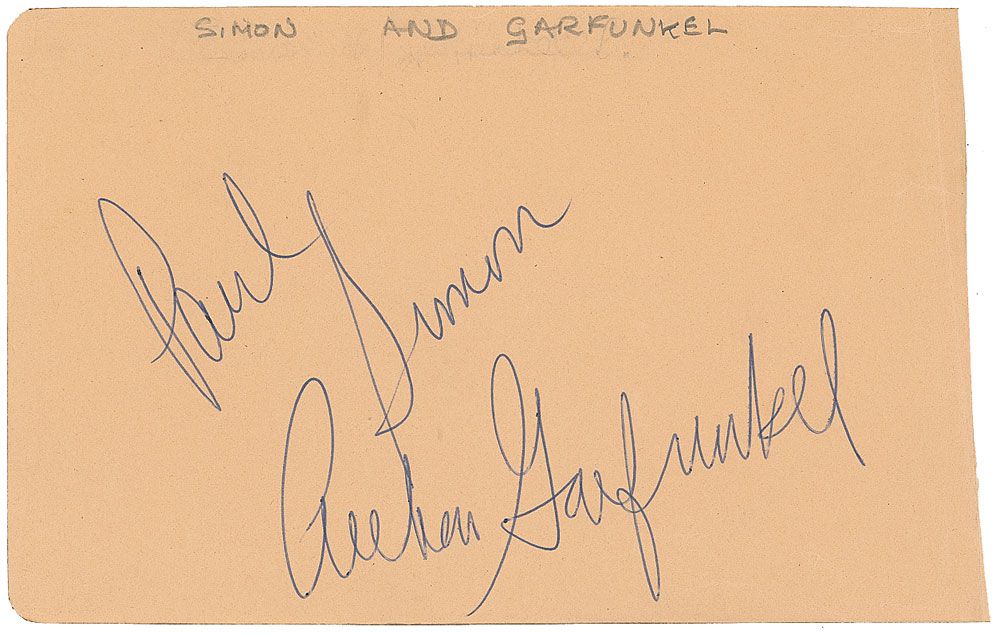 SIMON AND GARFUNKEL
Paul Simon
Arthur Garfunkel